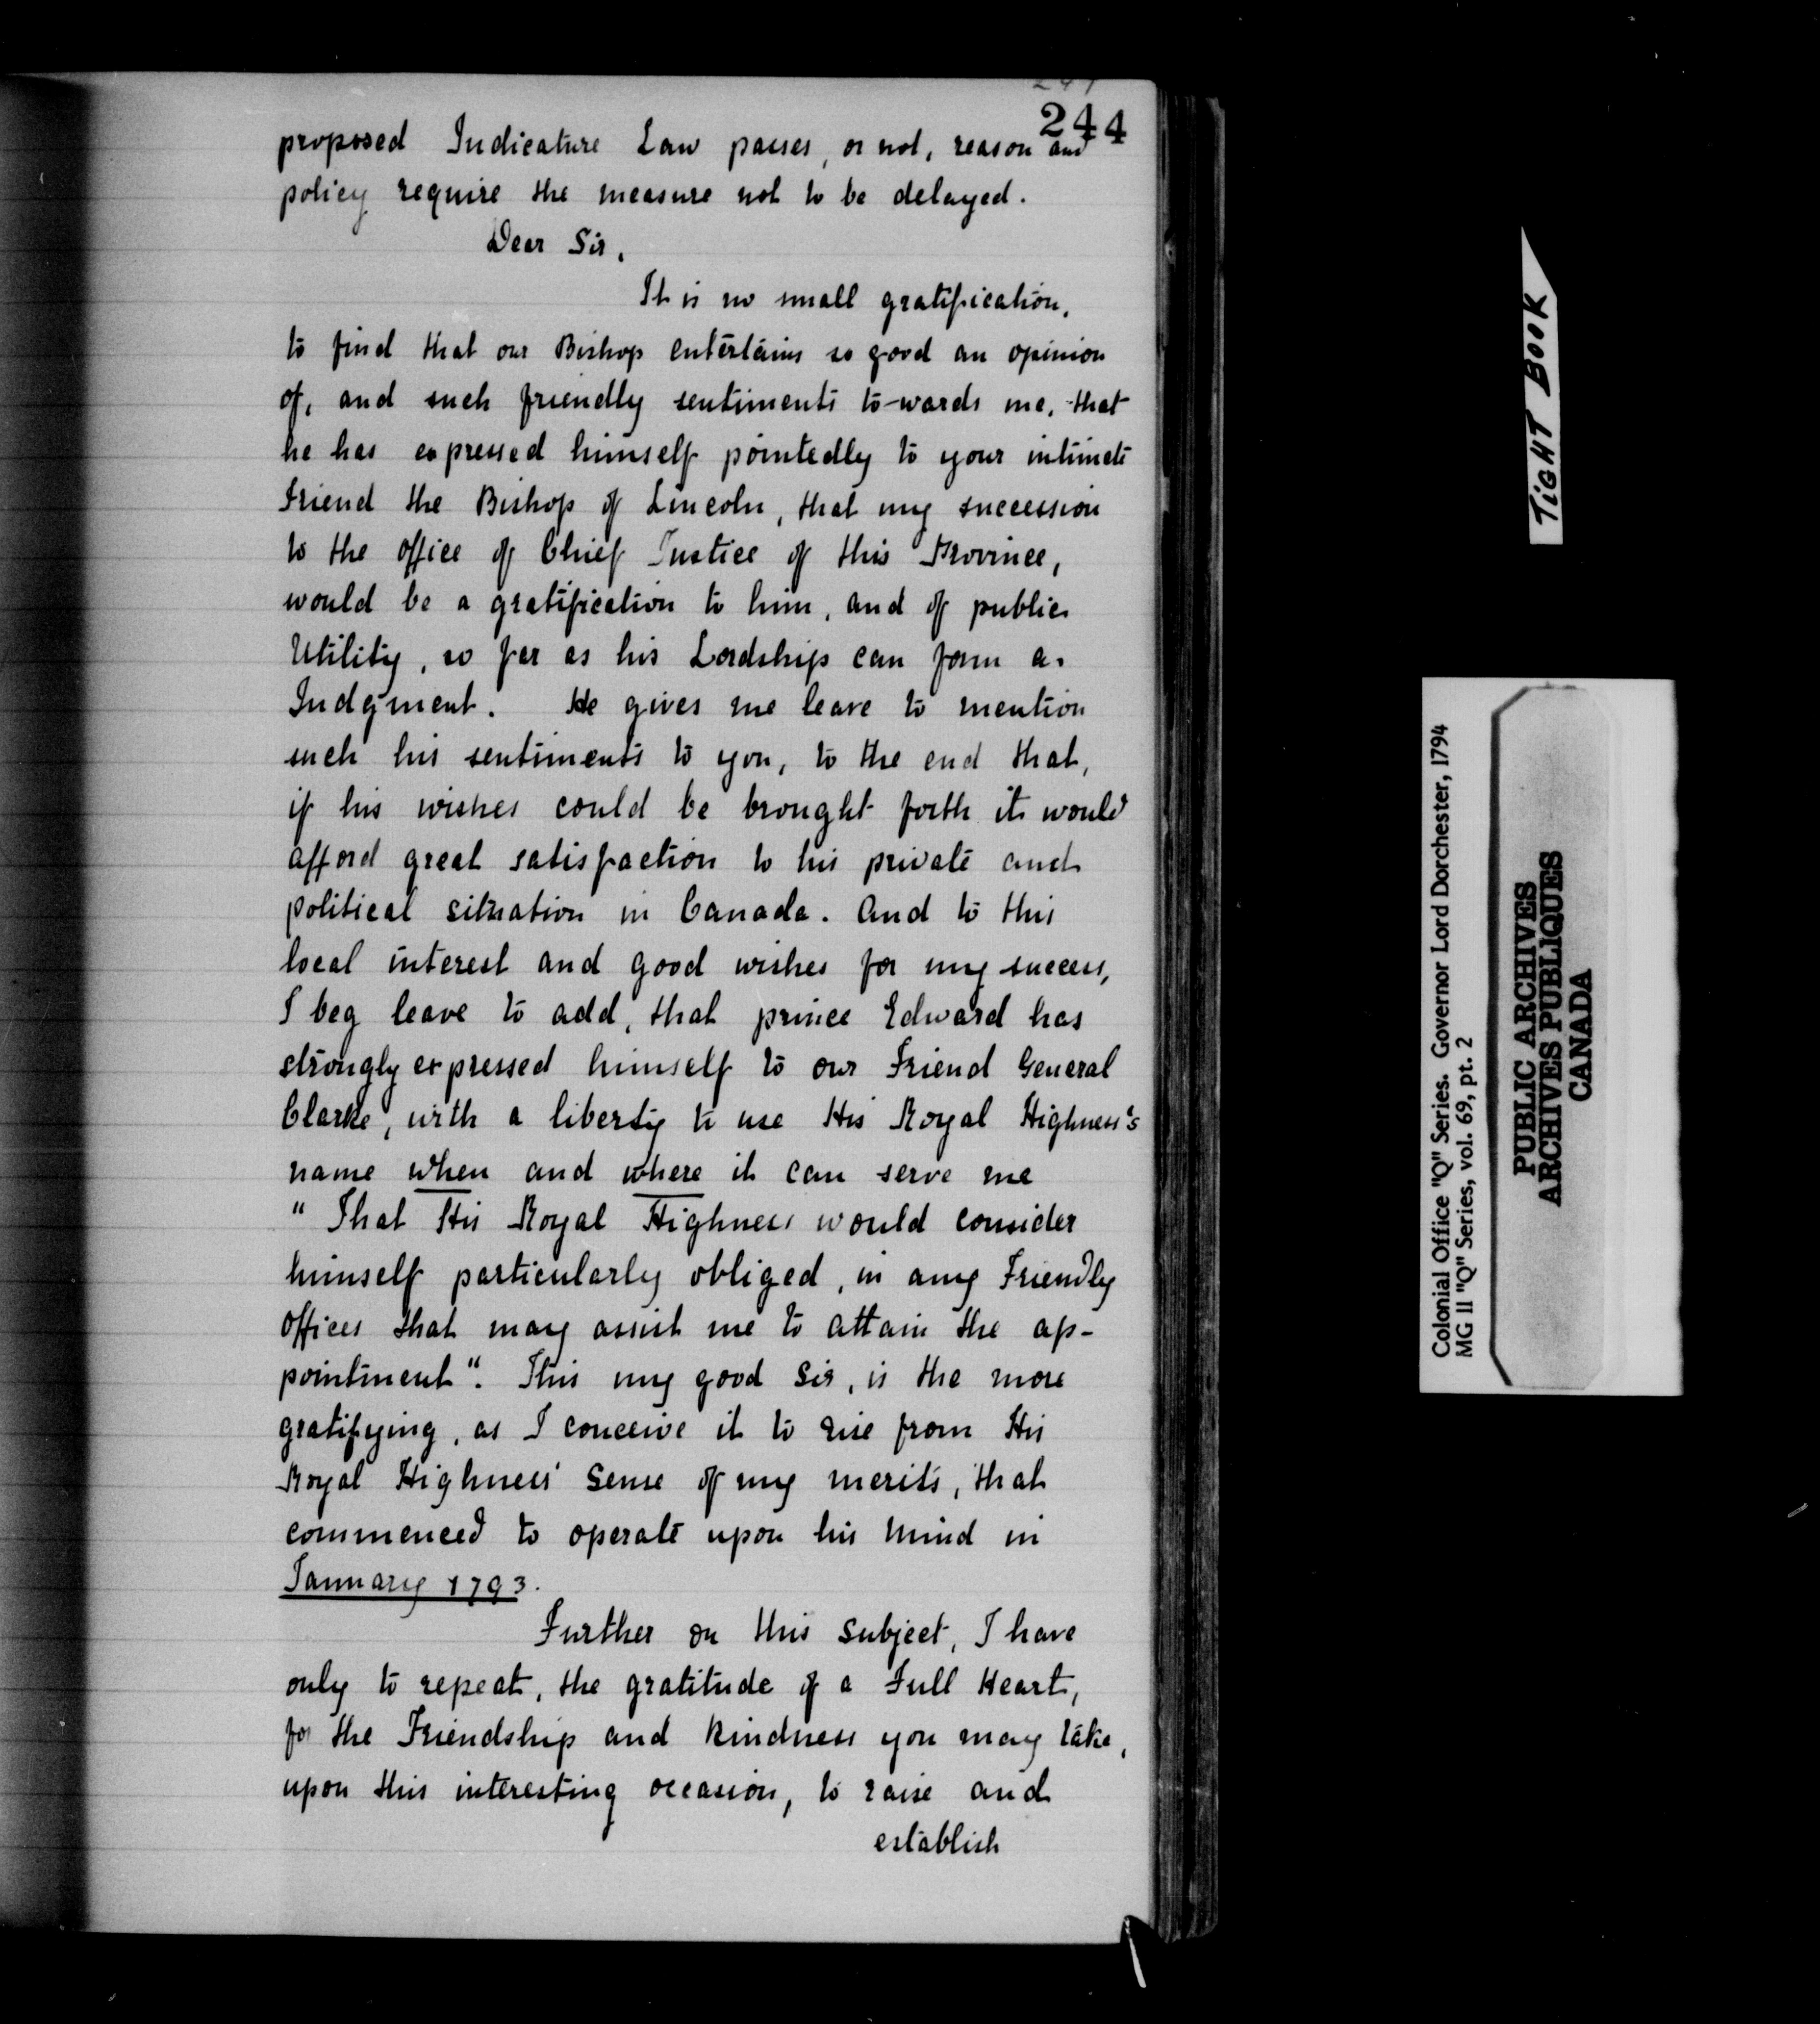 244
proposed Judicature Law passes, or not, reason and
policy require the measure not to be delayed.
Dear Sir,
It is no small gratification,
to find that our Bishop entertains so good an opinion
of, and such friendly sentiments to-wards me, that
he has expressed himself pointedly to your intimate
Friend the Bishop of Lincoln, that my succession
to the office of Chief Justice of this Province,
would be a gratification to him, and of public
Utility, so far as his Lordship can form a
Judgment. He gives me leave to mention
such his sentiments to you, to the end that,
if his wishes could be brought forth it would
afford great satisfaction to his private and
political situation in Canada. And to this
local interest and good wishes for my success,
I beg leave to add, that prince Edward has
strongly expressed himself to our Friend General
Clarke, with a liberty to use His Royal Highness's
name when and where it can serve me
" That His Royal Highness would consider
himself particularly obliged, in any Friendly
offices that may assist me to attain the ap-
pointment". This my good Sir, is the more
gratifying, as I conceive it to rise from His
Royal Highness' Sense of my merits, that
commenced to operate upon his mind in
January 1793.
Further on this subject, I have
only to repeat, the gratitude of a Full Heart,
for the Friendship and kindness you may take,
upon this interesting occasion, to raise and
establish
TIGHT BOOK
Colonial Office "Q" Series. Governor Lord Dorchester, 1794
MG 11 "Q" Series, vol. 69, pt. 2
PUBLIC ARCHIVES
ARCHIVES PUBLIQUES
CANADA